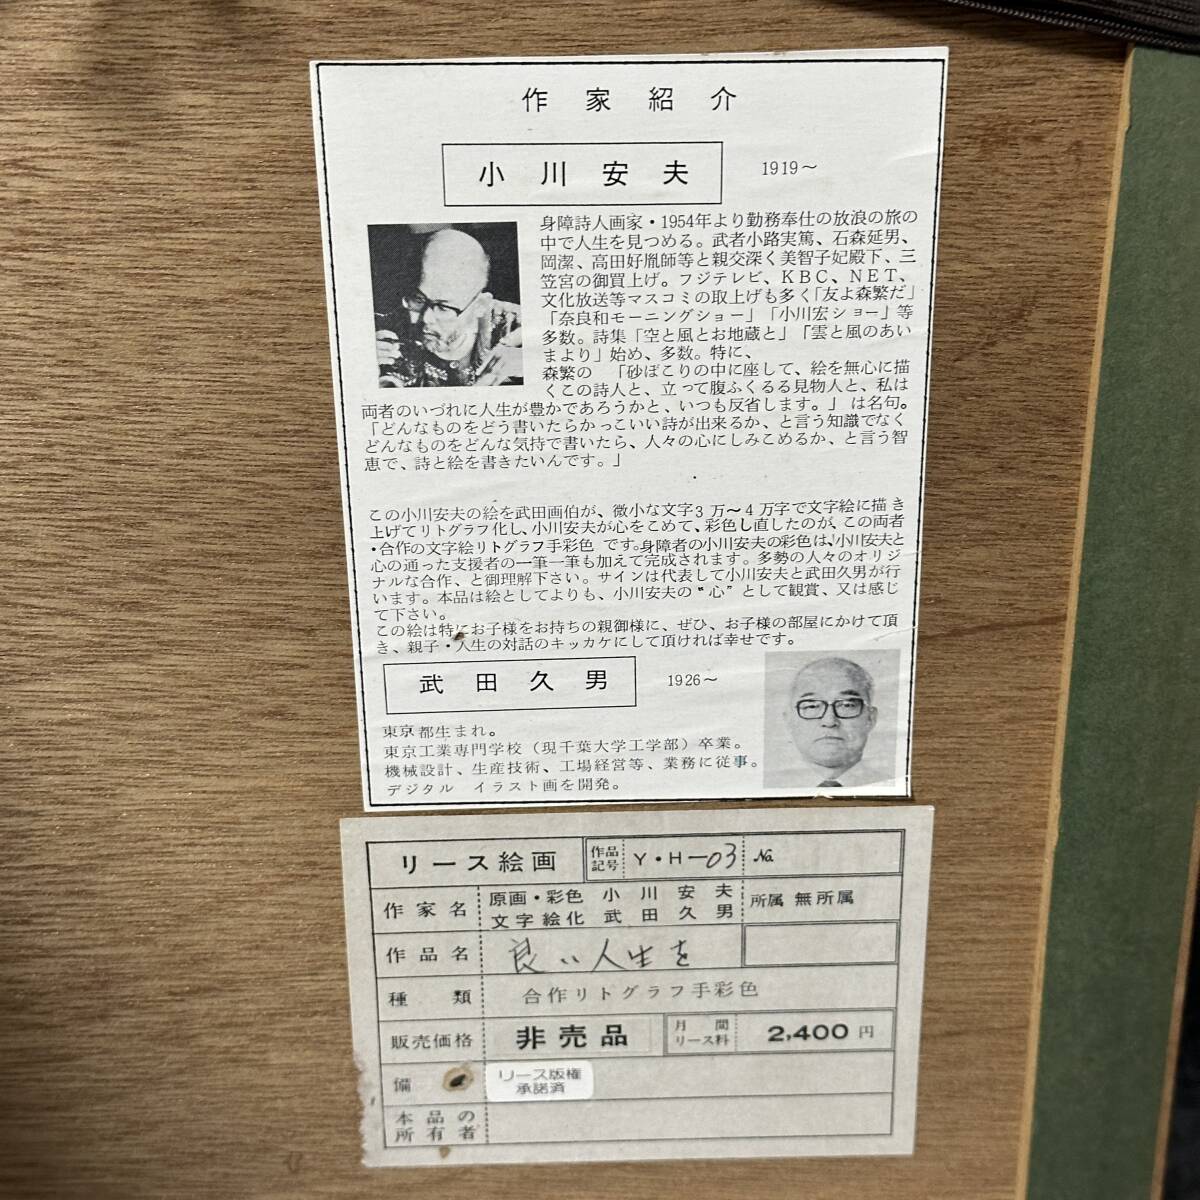 作家紹介
小川安夫 1919～
身障詩人画家・1954年より勤務奉仕の放浪の旅の
中で人生を見つめる。武者小路実篤、石森延男、
岡潔、高田好胤師等と親交深く美智子妃殿下、三
笠宮の御買上げ。フジテレビ、KBC、NET、
文化放送等マスコミの取上げも多く「友よ森繁だ」
「奈良和モーニングショー」「小川宏ショー」等
多数。詩集「空と風とお地蔵と」「雲と風のあい
まより」始め、多数。特に、
森繁の 「砂ぼこりの中に座して、絵を無心に描
くこの詩人と、立って腹ふくるる見物人と、私は
両者のいづれに人生が豊かであろうかと、いつも反省します。」は名句。
「どんなものをどう書いたらかっこいい詩が出来るか、と言う知識でなく
どんなものをどんな気持で書いたら、人々の心にしみこめるか、と言う智
恵で、詩と絵を書きたいんです。」
この小川安夫の絵を武田画伯が、微小な文字3万～4万字で文字絵に描き
上げてリトグラフ化し、小川安夫が心をこめて、彩色し直したのが、この両者
・合作の文字絵リトグラフ手彩色 です。身障者の小川安夫の彩色は、小川安夫と
心の通った支援者の一筆一筆も加えて完成されます。多勢の人々のオリジ
ナルな合作、と御理解下さい。サインは代表して小川安夫と武田久男が行
います。本品は絵としてよりも、小川安夫の“心”として観賞、又は感じ
て下さい。
この絵は特にお子様をお持ちの親御様に、ぜひ、お子様の部屋にかけて頂
き、親子・人生の対話のキッカケにして頂ければ幸せです。
武田久男 1926～
東京都生まれ。
東京工業専門学校（現千葉大学工学部）卒業。
機械設計、生産技術、工場経営等、業務に従事。
デジタル イラスト画を開発。
リース絵画 作品記号 Y・H-03 No.
作家名 原画・彩色 小川安夫 所属 無所属
文字絵化 武田久男
作品名 良い人生を
種類 合作リトグラフ手彩色
販売価格 非売品 月間リース料 2,400円
備 リース版権
承諾済
本品の
所有者